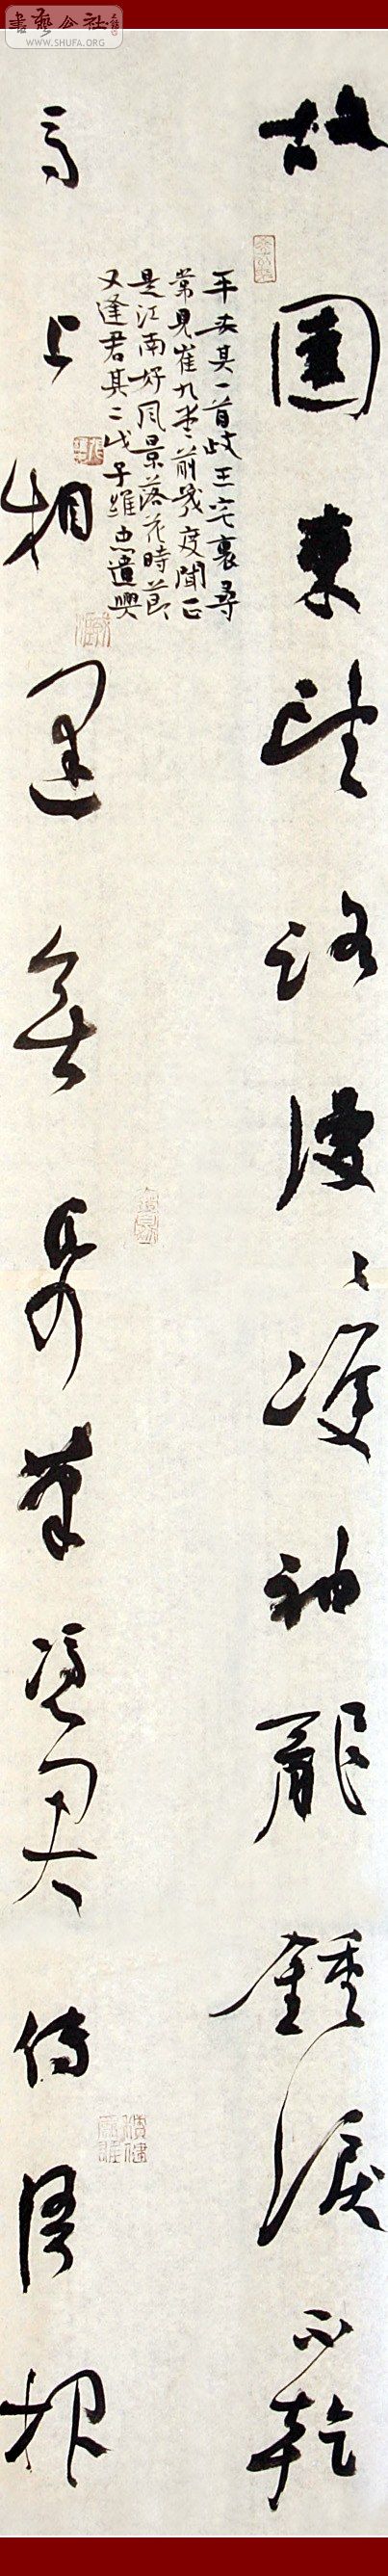 書藝公社
WWW.SHUFA.ORG
故園東望路漫〻雙袖龍鍾淚不乾
馬上相逢無帋筆憑君傳語報
平安其一首岐王宅裏尋
常見崔九堂前幾度聞正
是江南好風景落花時節
又逢君其二戊子維忠遣興